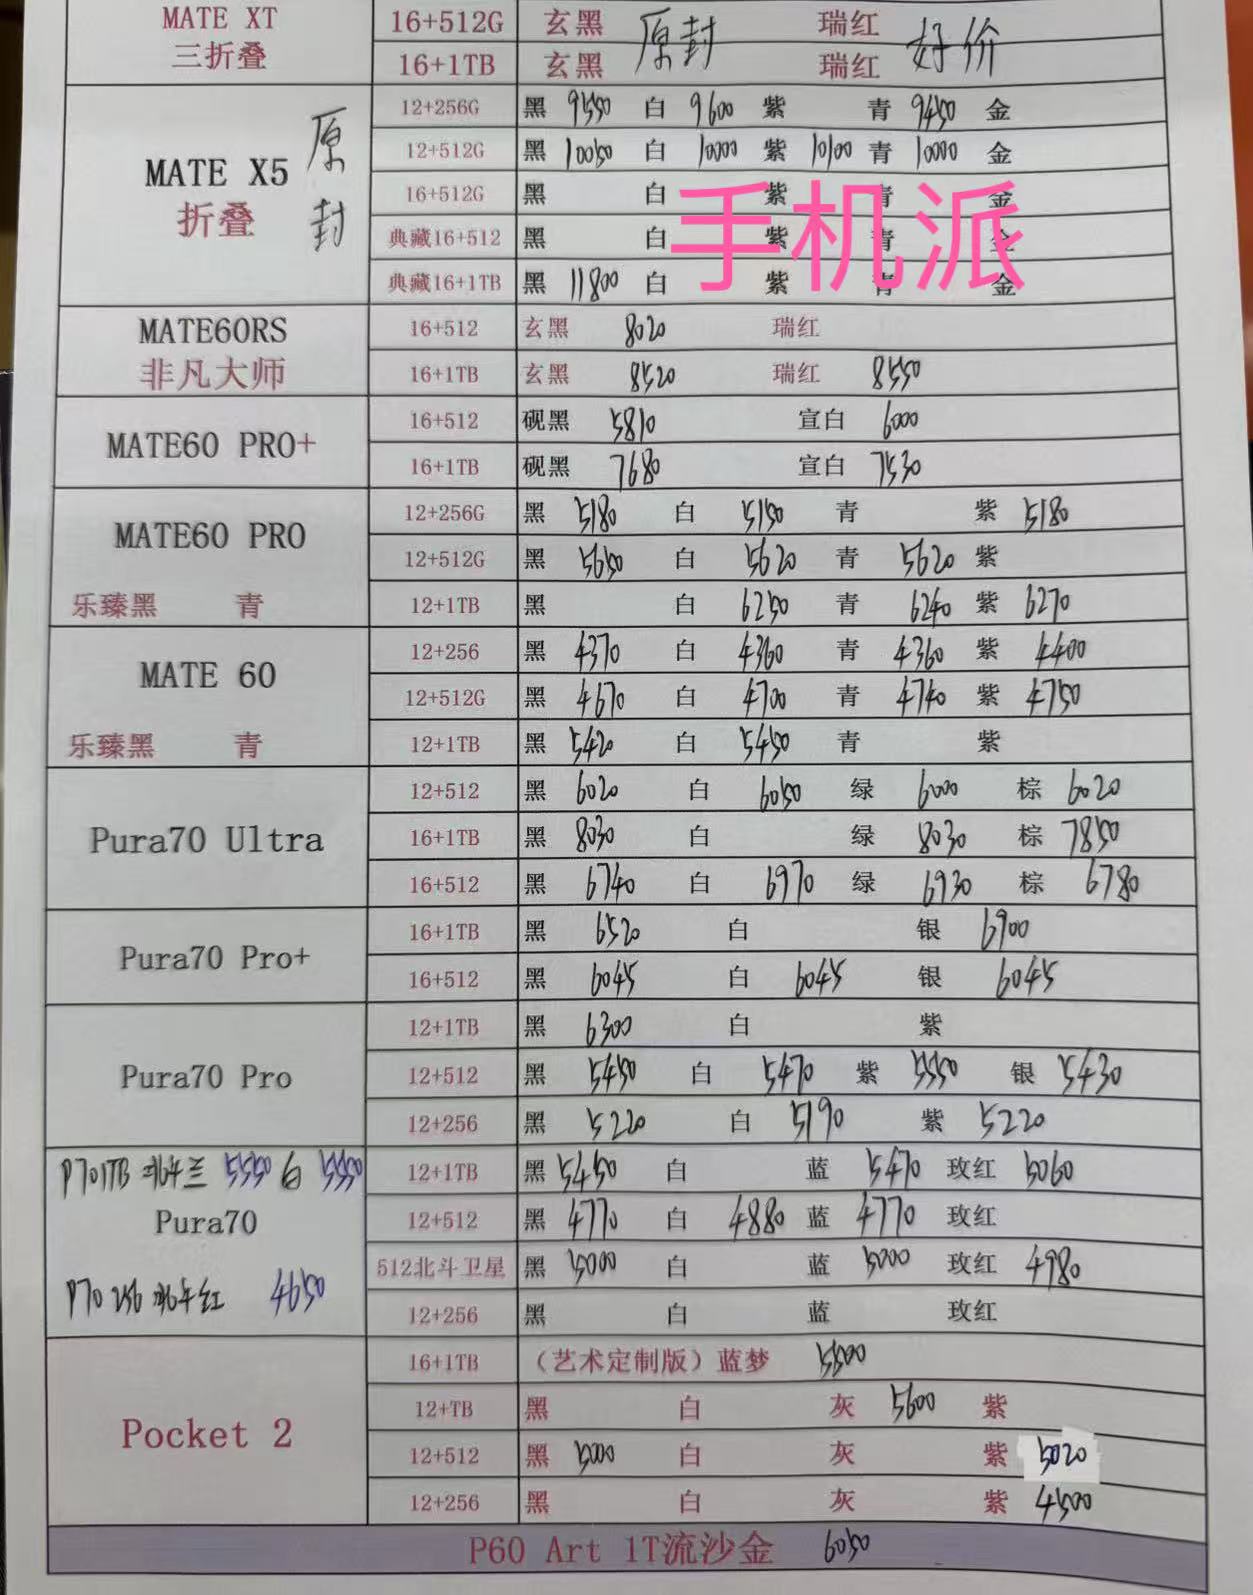 MATE XT 16+512G 玄黑 原封 瑞红 好价
三折叠 16+1TB 玄黑 瑞红
12+256G 黑 9550 白 9600 紫 青 9450 金
MATE X5 原封 12+512G 黑 10050 白 10000 紫 10100 青 10000 金
折叠 16+512G 黑 白 紫 青 金
手机派
典藏16+512 黑 白 紫 青 金
典藏16+1TB 黑 11800 白 紫 青 金
MATE60RS 16+512 玄黑 8020 瑞红
非凡大师 16+1TB 玄黑 8520 瑞红 8550
MATE60 PRO+ 16+512 砚黑 5810 宣白 6000
16+1TB 砚黑 7680 宣白 7530
MATE60 PRO 12+256G 黑 5180 白 5150 青 紫 5180
12+512G 黑 5650 白 5620 青 5620 紫
乐臻黑 青 12+1TB 黑 白 6250 青 6240 紫 6270
MATE 60 12+256 黑 4370 白 4360 青 4360 紫 4400
12+512G 黑 4670 白 4700 青 4740 紫 4750
乐臻黑 青 12+1TB 黑 5420 白 5450 青 紫
12+512 黑 6020 白 6050 绿 6000 棕 6020
Pura70 Ultra 16+1TB 黑 8030 白 绿 8030 棕 7850
16+512 黑 6740 白 6970 绿 6930 棕 6780
Pura70 Pro+ 16+1TB 黑 6520 白 银 6900
16+512 黑 6045 白 6045 银 6045
12+1TB 黑 6300 白 紫
Pura70 Pro 12+512 黑 5450 白 5470 紫 5550 银 5430
12+256 黑 5220 白 5190 紫 5220
P701TB 北斗兰 5550 白 5550 12+1TB 黑 5450 白 蓝 5470 玫红 5060
Pura70 12+512 黑 4770 白 4880 蓝 4770 玫红
512北斗卫星 黑 5000 白 蓝 5000 玫红 4980
P70 256 北斗红 4650 12+256 黑 白 蓝 玫红
16+1TB （艺术定制版）蓝梦 5500
Pocket 2 12+TB 黑 白 灰 5600 紫
12+512 黑 5000 白 灰 紫 5020
12+256 黑 白 灰 紫 4500
P60 Art 1T流沙金 6050